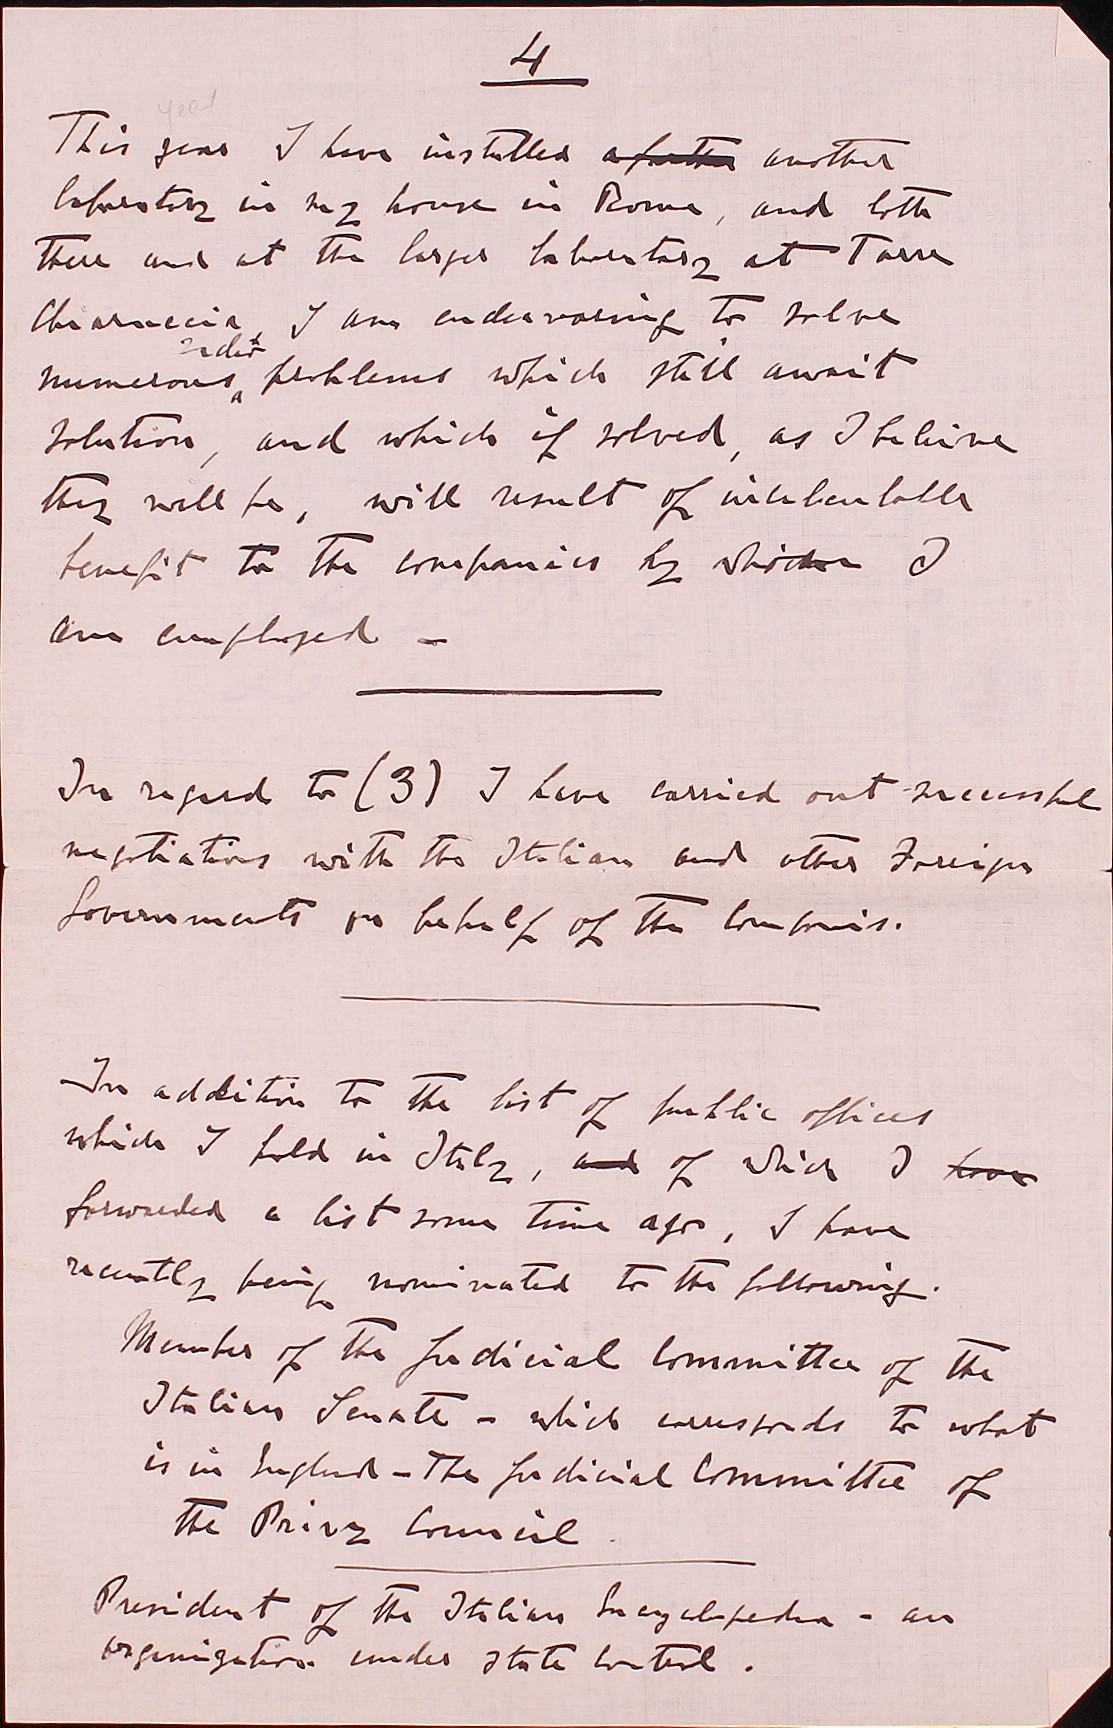 4
year
This year I have installed a further another
laboratory in my house in Rome, and both
there and at the larger laboratory at Torre
Chiaruccia, I am endeavoring to solve
radio
numerous problems which still await
solution, and which if solved, as I believe
they will be, will result of incalculable
benefit to the companies by which I
am employed –
In regard to (3) I have carried out successful
negotiations with the Italian and other Foreign
Governments on behalf of the Companies.
In addition to the list of public offices
which I hold in Italy, and of which I have
forwarded a list some time ago, I have
recently being nominated to the following.
Member of the Judicial Committee of the
Italian Senate – which corresponds to what
is in England – The Judicial Committee of
the Privy Council
President of the Italian Encyclopedia – an
organization under state control.